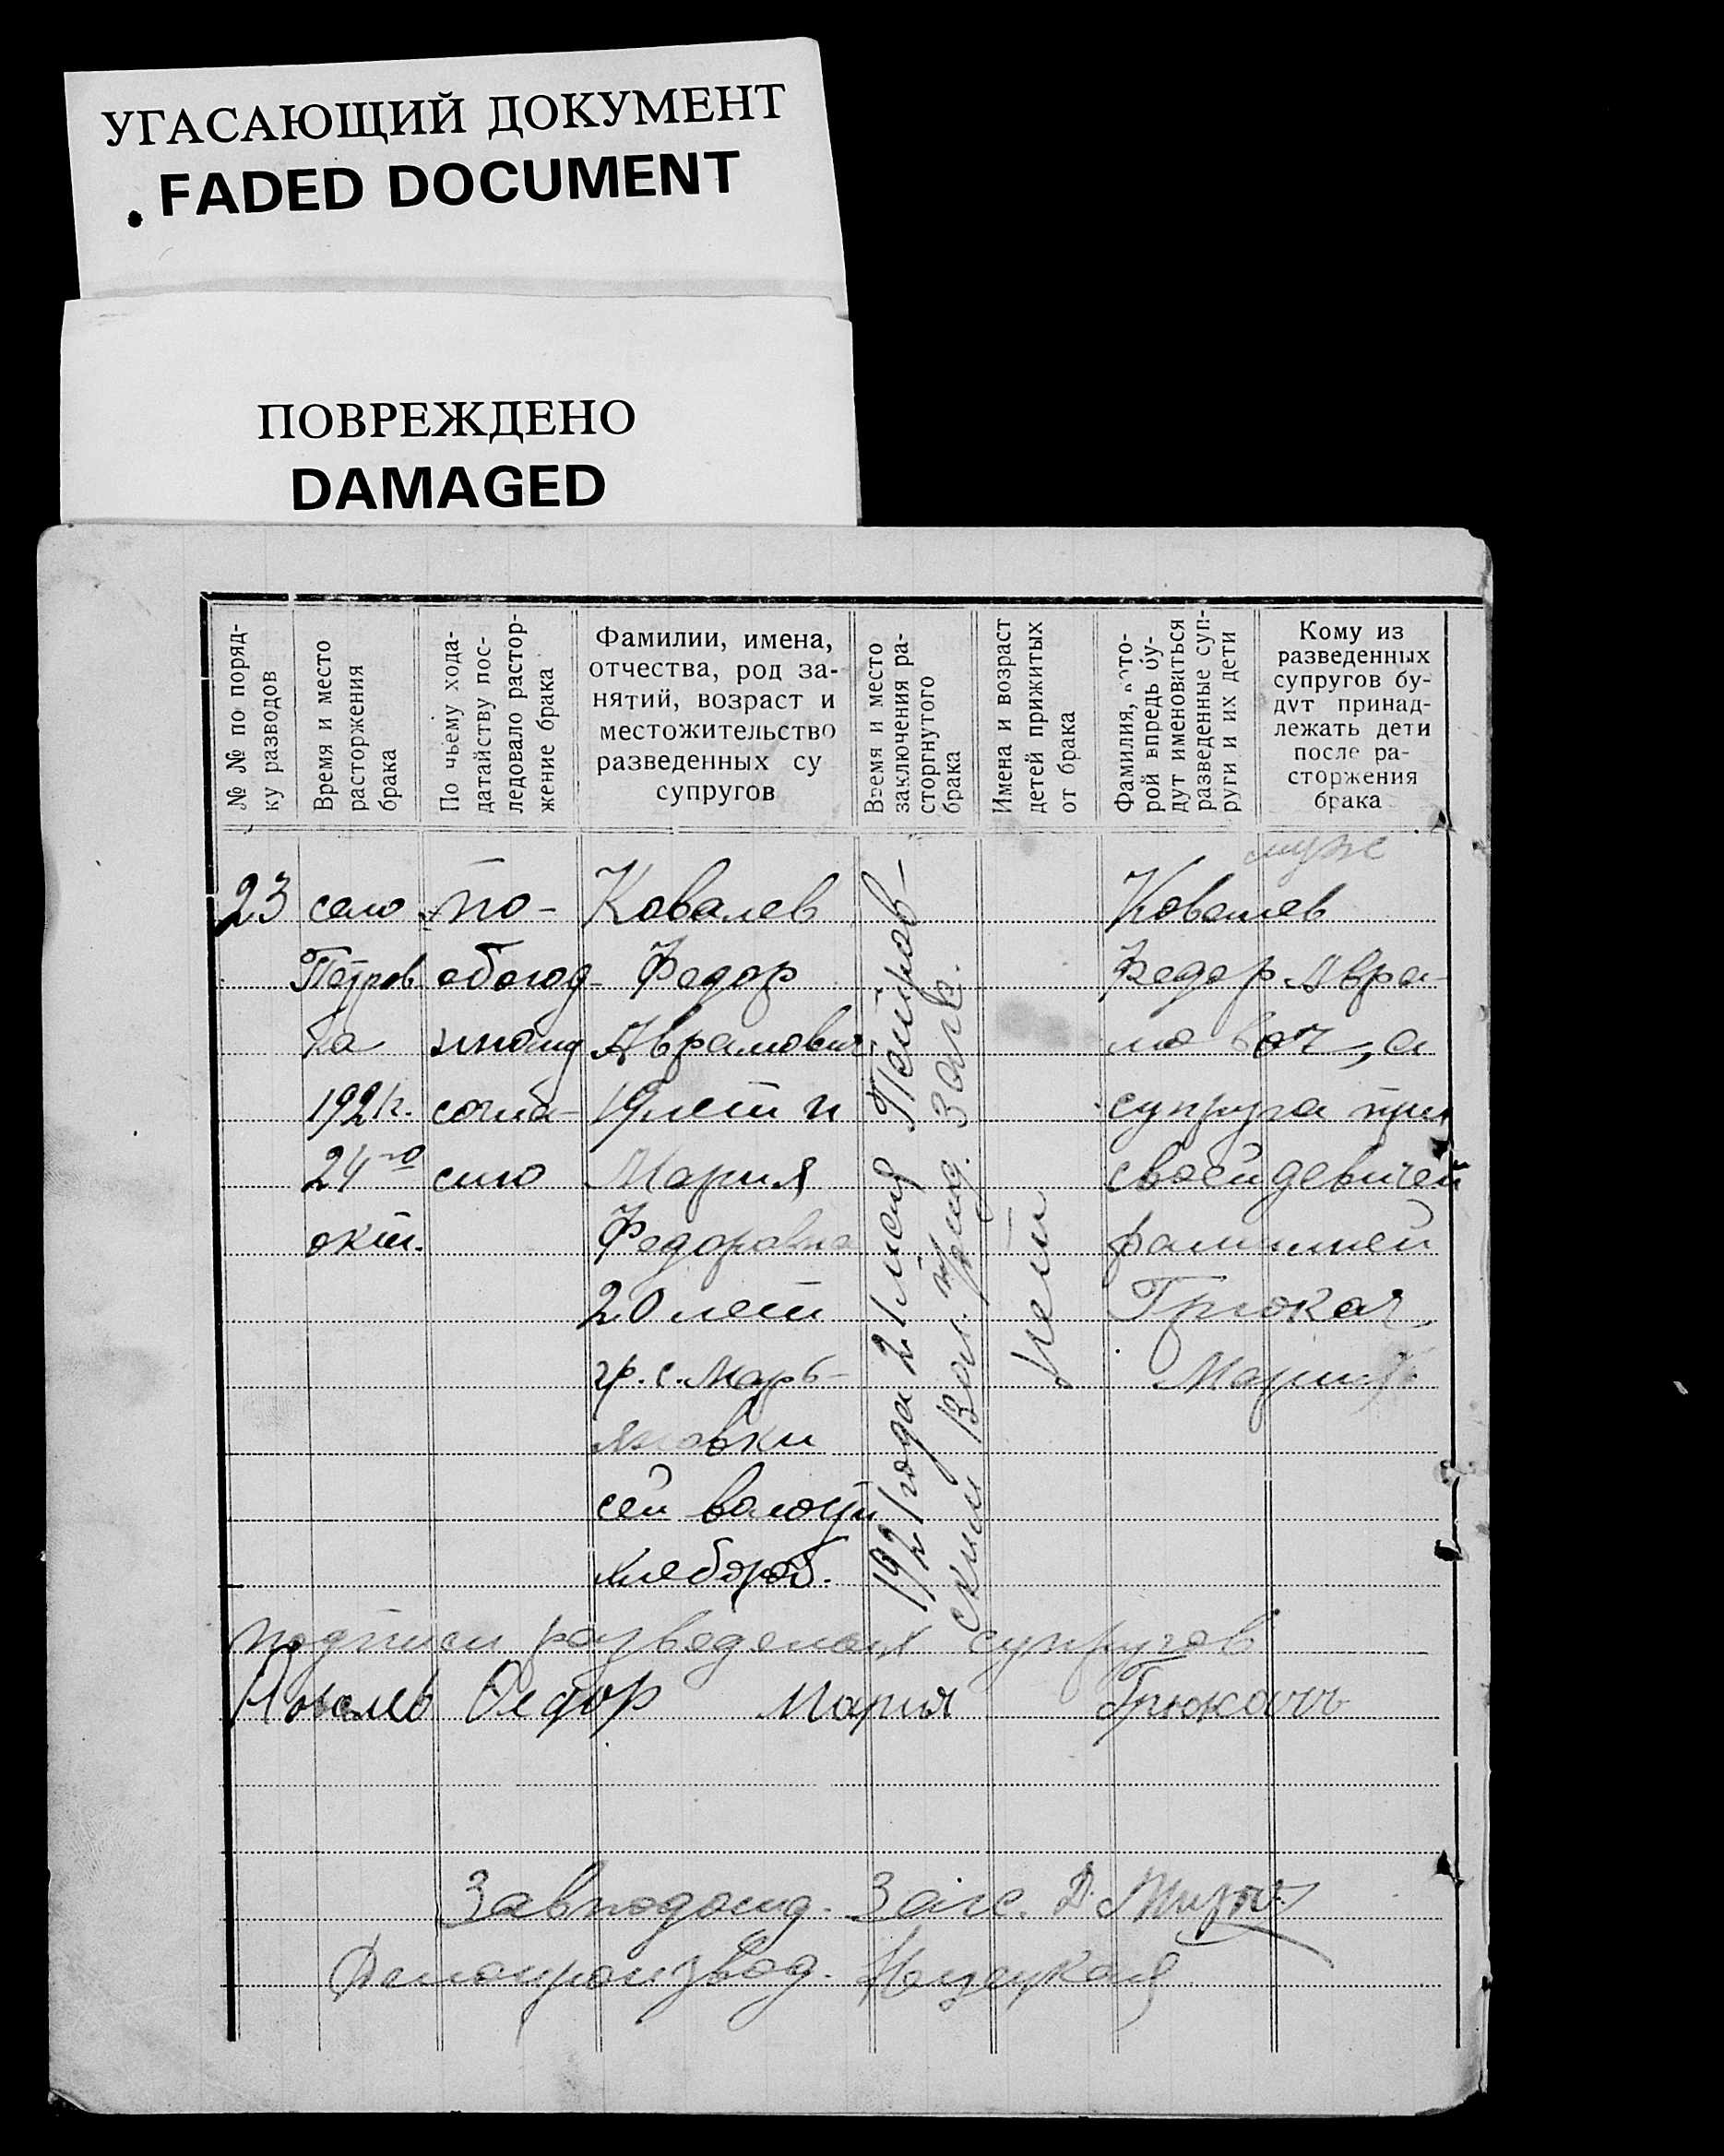 УГАСАЮЩИЙ ДОКУМЕНТ
FADED DOCUMENT
ПОВРЕЖДЕНО
DAMAGED
№ № по поряд-
ку разводов
Время и место
расторжения
брака
По чьему хода-
датайству пос-
ледовало растор-
жение брака
Фамилии, имена,
отчества, род за-
нятий, возраст и
местожительство
разведенных су
супругов
Время и место
заключения ра-
сторгнутого
брака
Имена и возраст
детей прижитых
от брака
Фамилия, кото-
рой впредь бу-
дут именоваться
разведенные суп-
руги и их дети
Кому из
разведенных
супругов бу-
дут принад-
лежать дети
после ра-
сторжения
брака
23
село
Петров
ка
1921г.
24го
окт.
по-
обоюд-
ному
согла-
сию
Ковалев
Федор
Аврамович
19 лет и
Мария
Федоровна
20 лет
гр. с. Марь-
яновки
сей волости
хлебороб.
1921 года 21 мая Петров-
ским Вол. Загс.
нет
муж
Ковалев
Федор Авра-
мович, а
супруга при
своей девичей
фамилией
Мария
подписи разведеных супругов
Ковалев Федор Мария
Завподотд. Загс.
Делопроизвод.